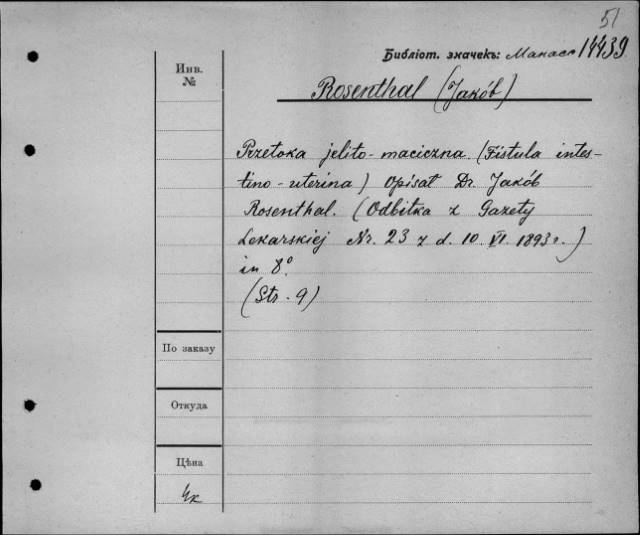 51
Библіот. значекъ: Манасс 14439
Инв.
№
Rosenthal (Jakób)
Przetoka jelito-maciczna. (Fistula intes-
tino-uterina) opisał Dr. Jakób
Rosenthal. (Odbitka z Gazety
Lekarskiej Nr. 23 z d. 10 VI. 1893 r.)
in 8°.
(Str. 9)
По заказу
Откуда
Цѣна